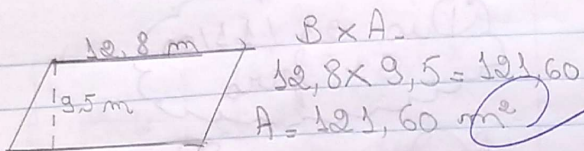 12,8 m
9,5 m
B x A
12,8 x 9,5 = 121,60
A = 121,60 m²